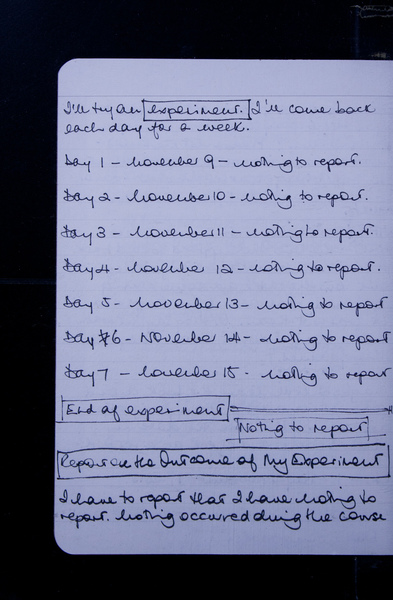 I'll try an experiment. I'll come back
each day for a week.
Day 1 - November 9 - nothing to report.
Day 2 - November 10 - nothing to report.
Day 3 - November 11 - nothing to report.
Day 4 - November 12 - nothing to report.
Day 5 - November 13 - nothing to report
Day 6 - November 14 - nothing to report
Day 7 - November 15 - nothing to report
End of experiment
Nothing to report
Report on the Outcome of My Experiment
I have to report that I have nothing to
report. Nothing occurred during the course